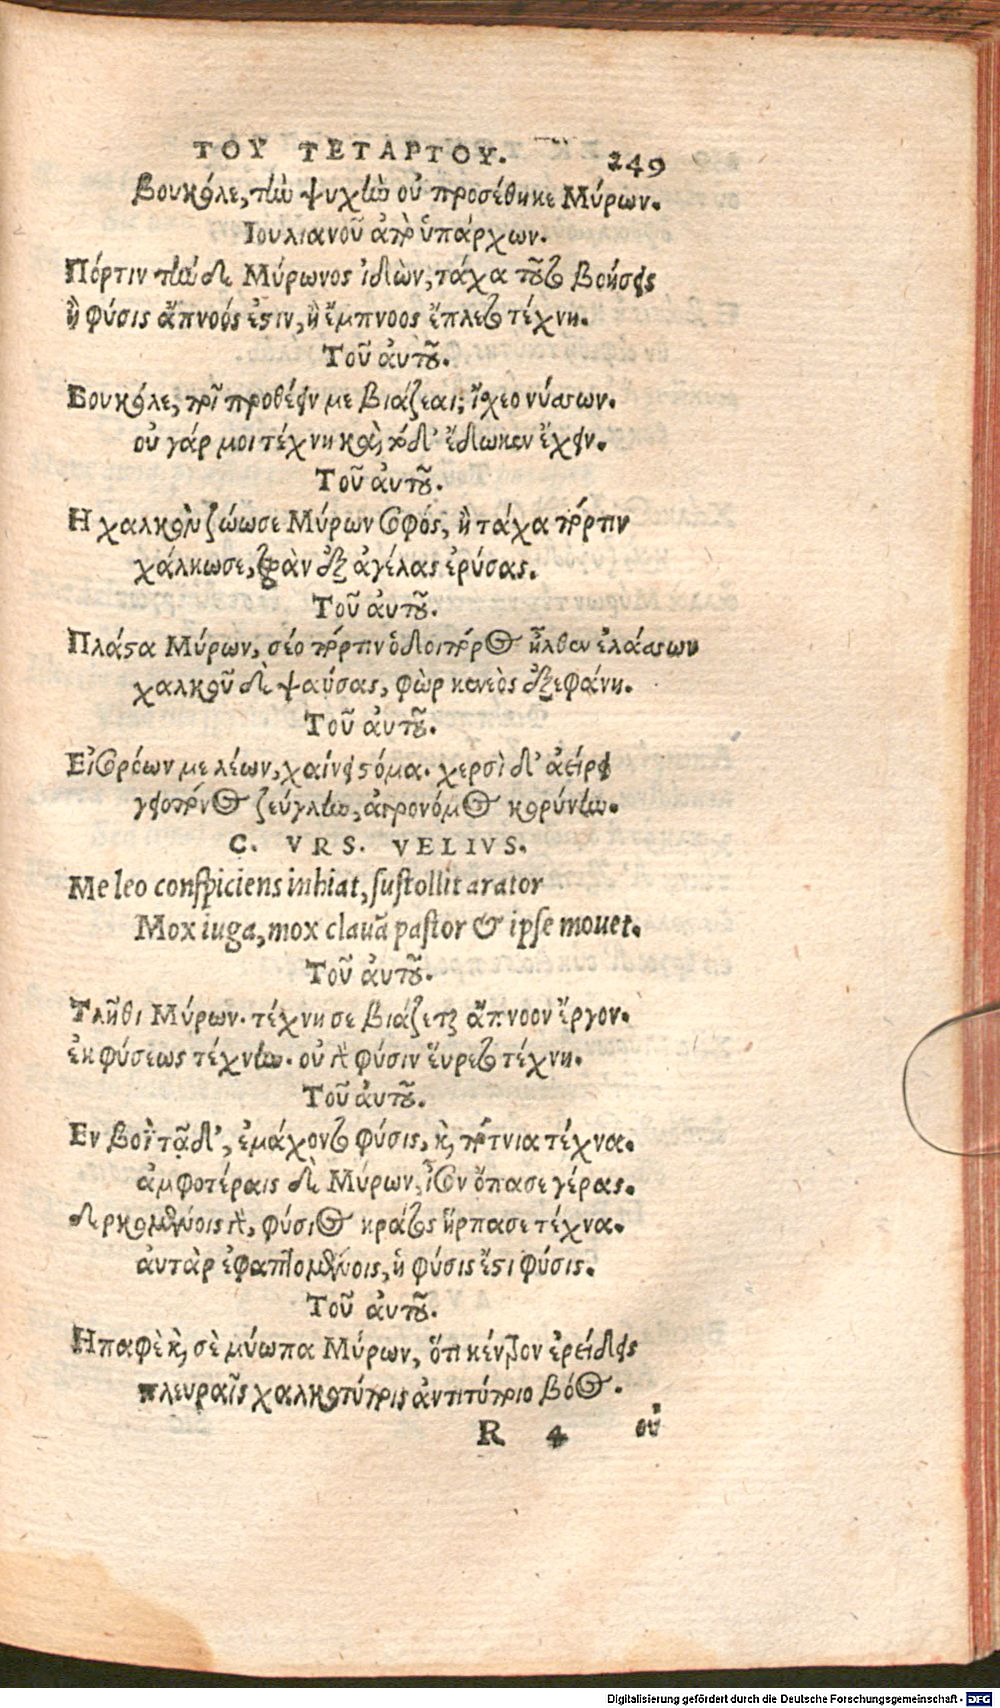 ΤΟΥ ΤΕΤΑΡΤΟΥ. 249
Βουκόλε, τὴν ψυχὴν οὐ προσέθηκε Μύρων.
Ιουλιανοῦ ἀπὸ ὑπάρχων.
Πόρτιν τήνδε Μύρωνος ἰδὼν, τάχα τοῦτο βοήσεις
ἢ φύσις ἄπνοός ἐστιν, ἢ ἔμπνοος ἔπλετο τέχνη.
Τοῦ αὐτοῦ.
Βουκόλε, ποῖ προθέειν με βιάζεαι; ἴσχεο νύσσων.
οὐ γάρ μοι τέχνη καὶ τόδ' ἔδωκεν ἔχειν.
Τοῦ αὐτοῦ.
Η χαλκὸν ζώωσε Μύρων σοφός, ἢ τάχα πόρτιν
χάλκωσε, ζωὰν ἐξ ἀγέλας ἐρύσας.
Τοῦ αὐτοῦ.
Πλάστα Μύρων, σέο πόρτιν ὁδοιπόρος ἦλθεν ἐλάσσων
χαλκοῦ δὲ ψαύσας, φὼρ κενεὸς ἐξεφάνη.
Τοῦ αὐτοῦ.
Εἰσορόων με λέων, χαίνει στόμα. χερσὶ δ' ἀείρει
γειοπόνος ζεύγλην, ἀγρονόμος κορύνην.
C. VRS. VELIVS.
Me leo conspiciens inhiat, sustollit arator
Mox iuga, mox clauã pastor & ipse mouet.
Τοῦ αὐτοῦ.
Τλῆθι Μύρων. τέχνη σε βιάζεται ἄπνοον ἔργον.
ἐκ φύσεως τέχνην. οὐ γὰρ φύσιν εὕρετο τέχνη.
Τοῦ αὐτοῦ.
Εν βοῒ τᾷδ', ἐμάχοντο φύσις, καὶ πότνια τέχνα.
ἀμφοτέραις δὲ Μύρων, ἶσον ὄπασε γέρας.
δερκομένοις γὰρ, φύσιος κράτος ἥρπασε τέχνα.
αὐτὰρ ἐφαπτομένοις, ἡ φύσις ἔστι φύσις.
Τοῦ αὐτοῦ.
Ηπαφὲ καὶ σὲ μύωπα Μύρων, ὅτι κέντρον ἐρείδεις
πλευραῖς χαλκοτύποις ἀντιτύποιο βόος.
R 4 οὐ
Digitalisierung gefördert durch die Deutsche Forschungsgemeinschaft - DFG